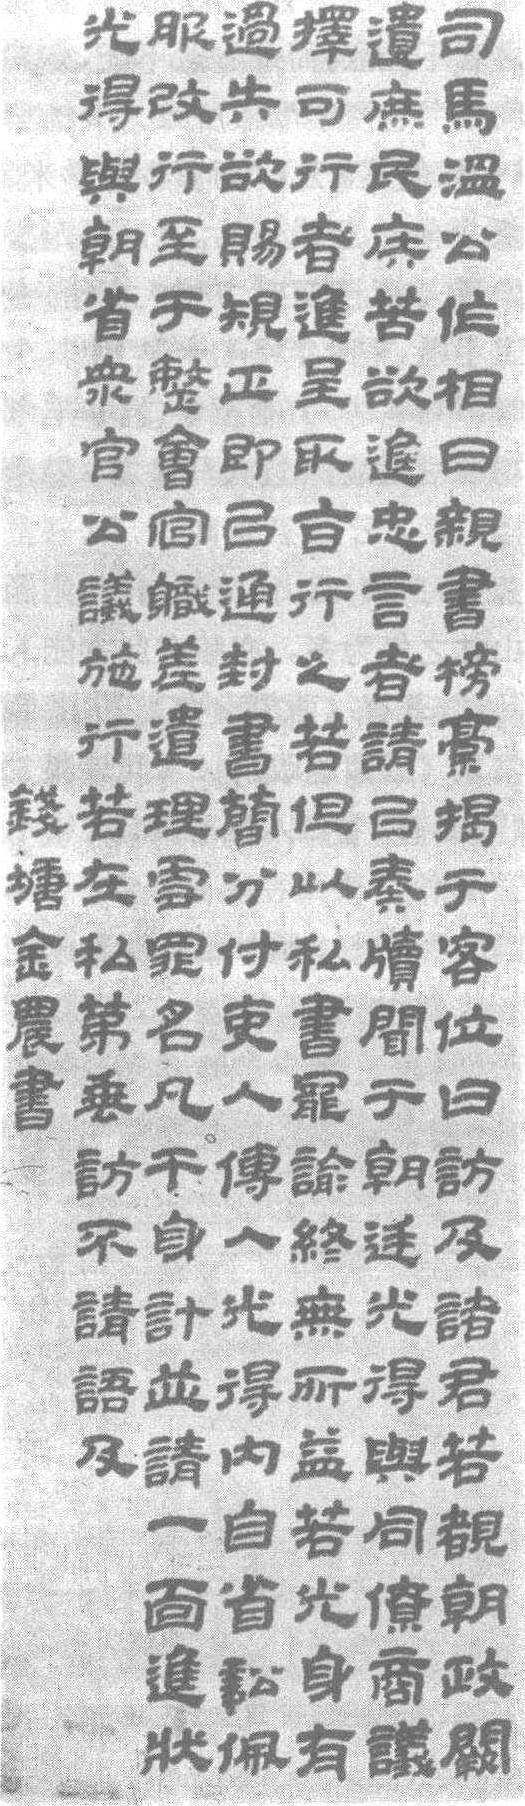 司馬溫公作相日親書榜藁揭于客位曰訪及諸君若覩朝政闕
遺庶民疾苦欲進忠言者請以奏牘聞于朝廷光得與同僚商議
擇可行者進呈取旨行之若但以私書寵諭終無所益若光身有
過失欲賜規正即以通封書簡分付吏人傳入光得內自省訟佩
服改行至于整會官職差遣理雪罪名凡干身計並請一面進狀
光得與朝省衆官公議施行若在私第垂訪不請語及
錢塘金農書